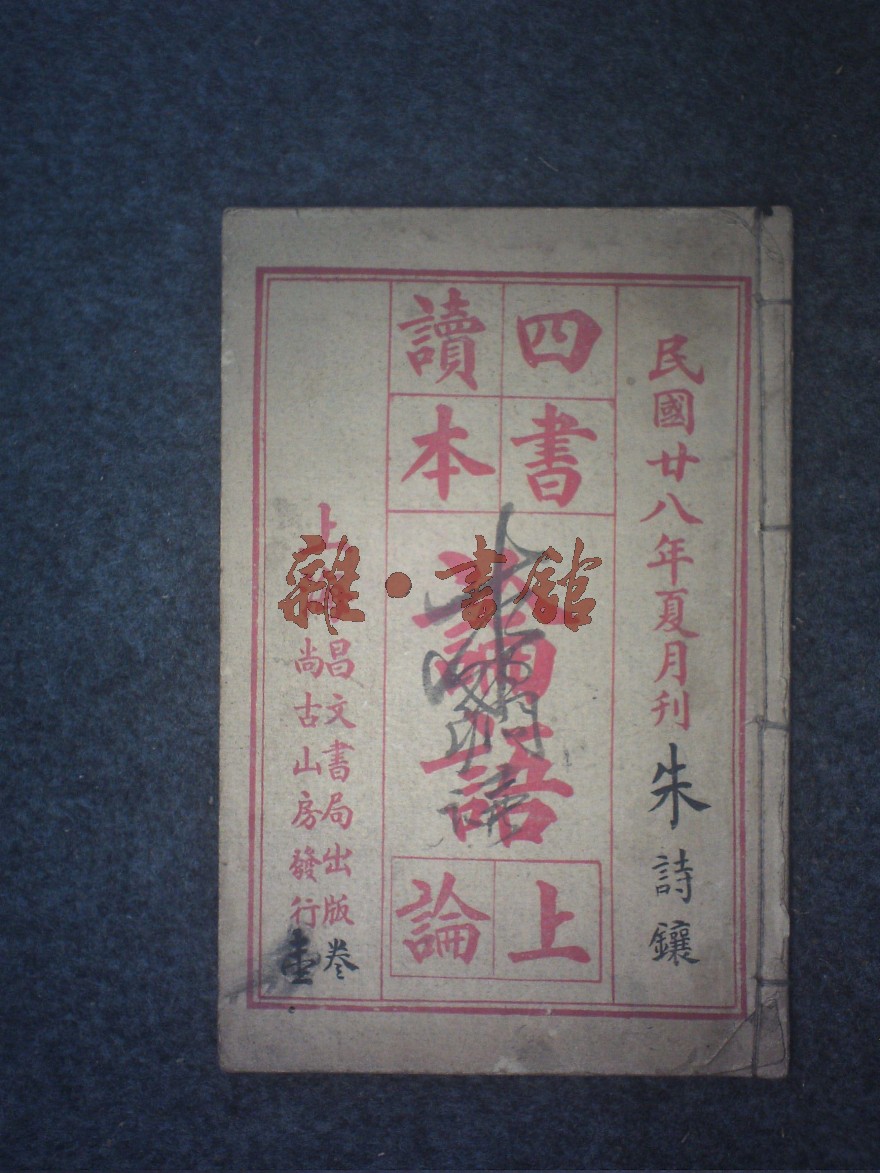 民國廿八年夏月刊
朱詩鑲
四書
讀本
論語
上
論
昌文書局出版
尚古山房發行
卷
壹
雜·書館